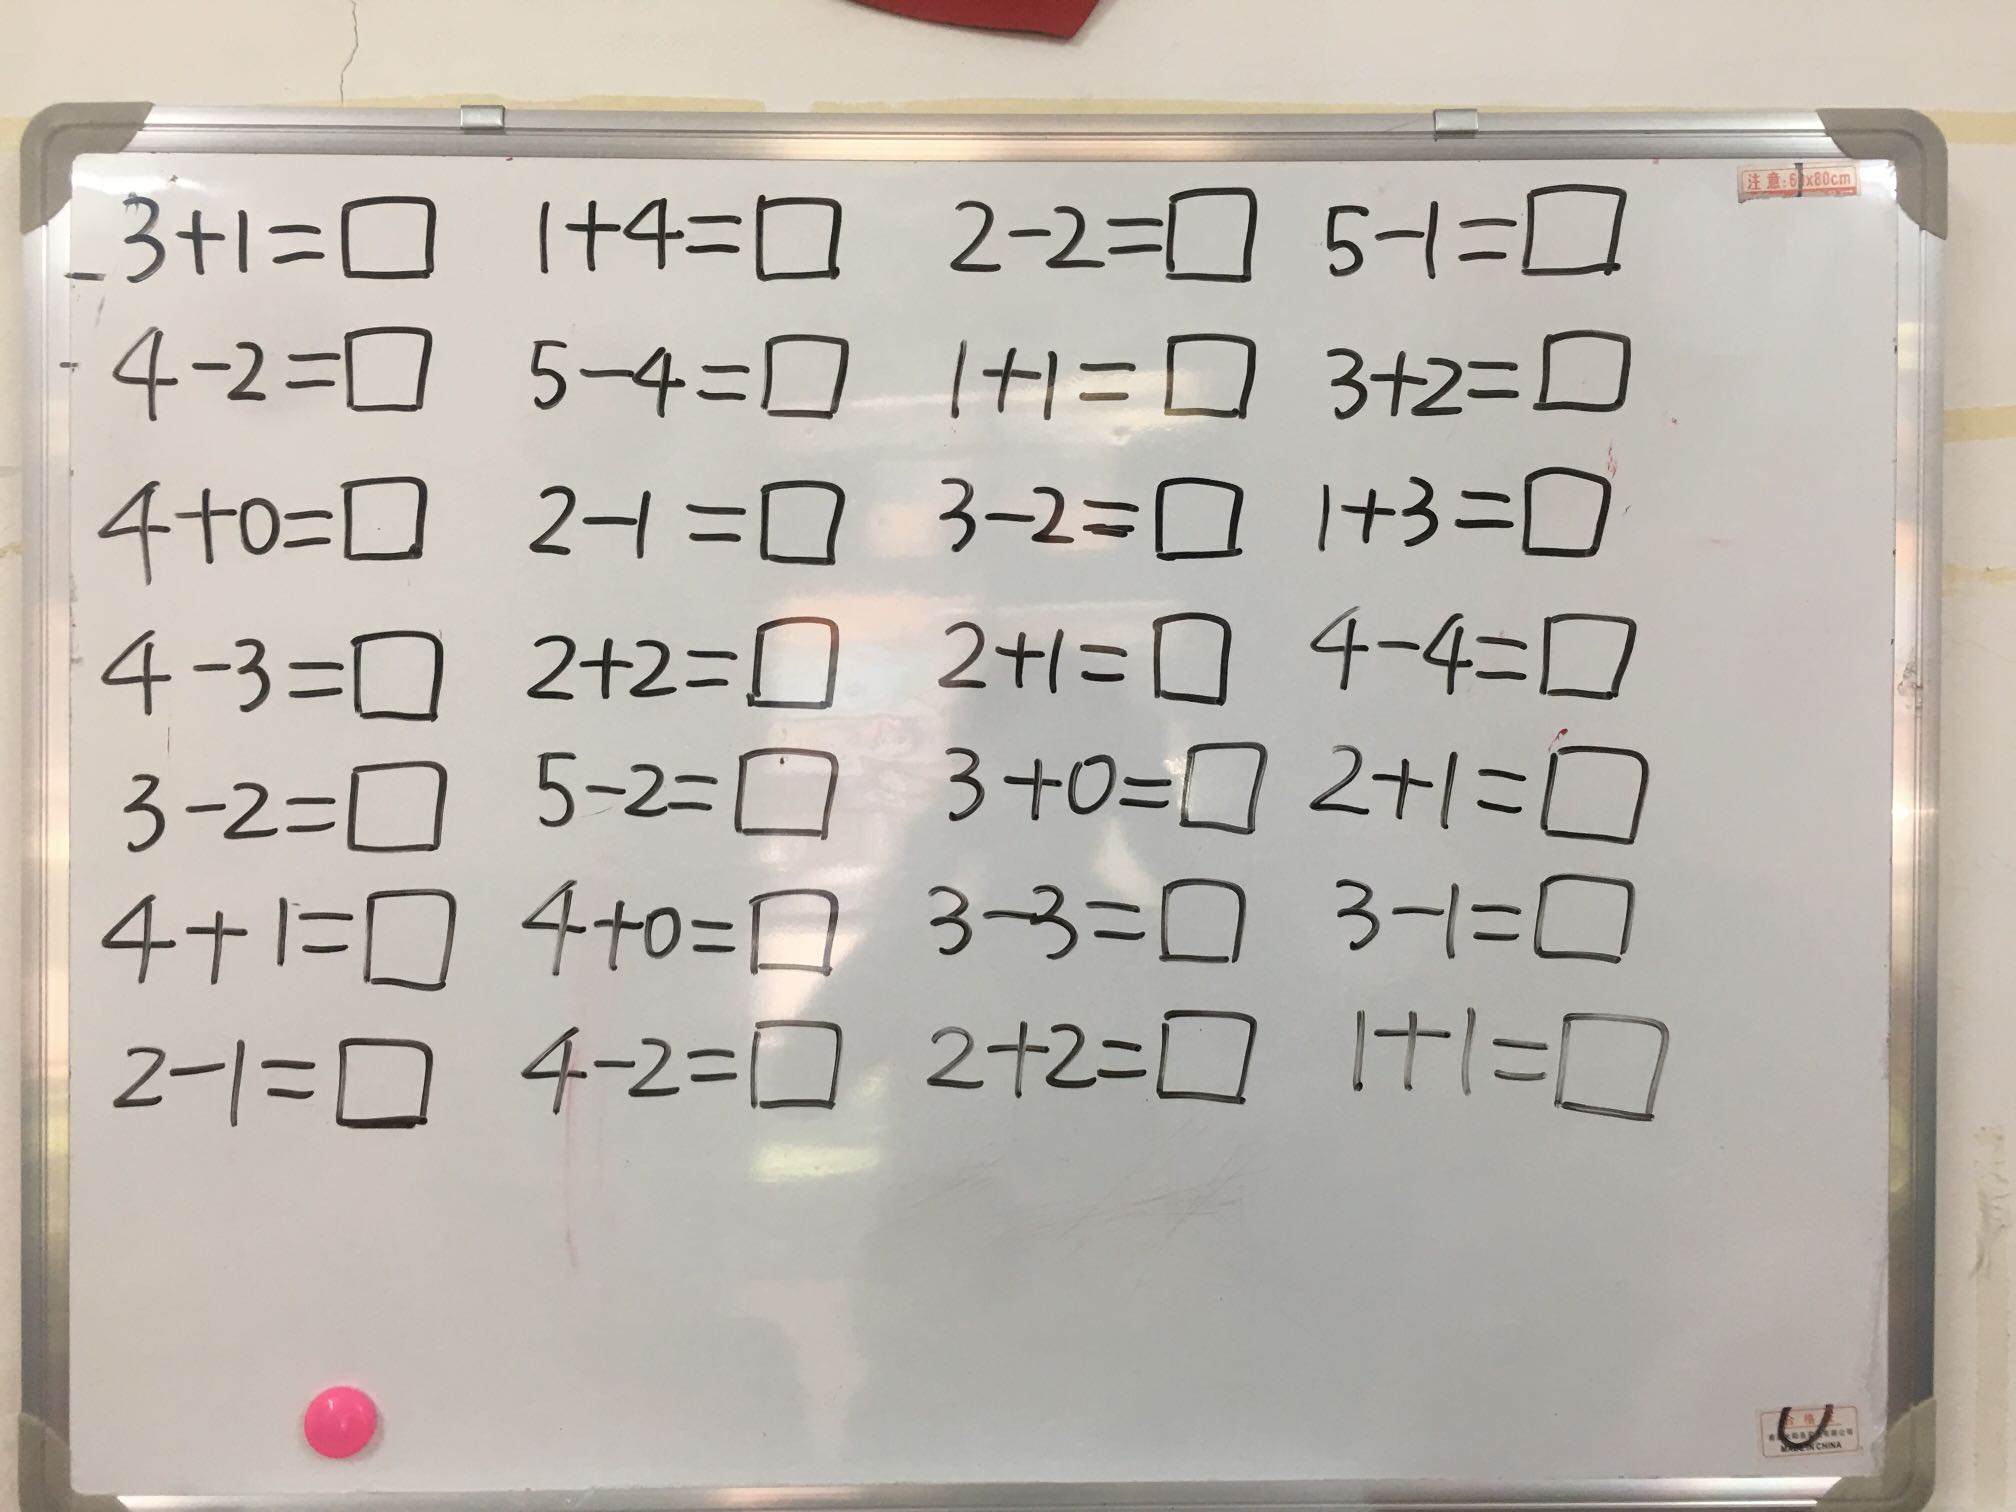 注意:60x80cm
3+1=□ 1+4=□ 2-2=□ 5-1=□
4-2=□ 5-4=□ 1+1=□ 3+2=□
4+0=□ 2-1=□ 3-2=□ 1+3=□
4-3=□ 2+2=□ 2+1=□ 4-4=□
3-2=□ 5-2=□ 3+0=□ 2+1=□
4+1=□ 4+0=□ 3-3=□ 3-1=□
2-1=□ 4-2=□ 2+2=□ 1+1=□
合格
MADE IN CHINA